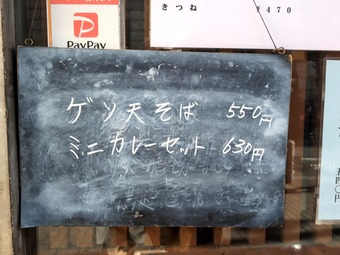 きつね ¥470
PayPay
ゲソ天そば 550円
ミニカレーセット 630円
五四〇円